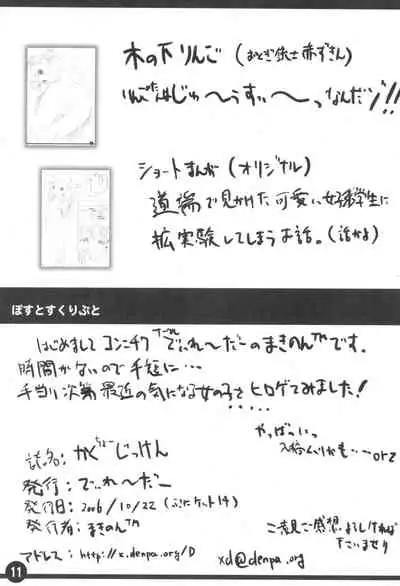 木の下りんご (おとぎ銃士赤ずきん)
りんごたんはじゅ〜うすぃ〜っなんだゾ!!
ショートまんが (オリジナル)
道場で見かけた可愛い女子学生に
拡実験してしまうお話。(話かよ)
ぽすとすくりぷと
はじめまして コンニチワ でぃれ〜だーのまきのん™です。
時間がないので手短に…
手当り次第最近の気になる女の子をヒロゲてみました!
やっばいっ
入稿ムリかも…ーorz
誌名: かくちょーじっけん
発行: でぃれ〜だー
発行日: 2006/10/22 (ぷにケット14)
発行者: まきのん™
ご意見ご感想よろしければ
下さいませ
アドレス: http://x.denpa.org/D xd@denpa.org
11